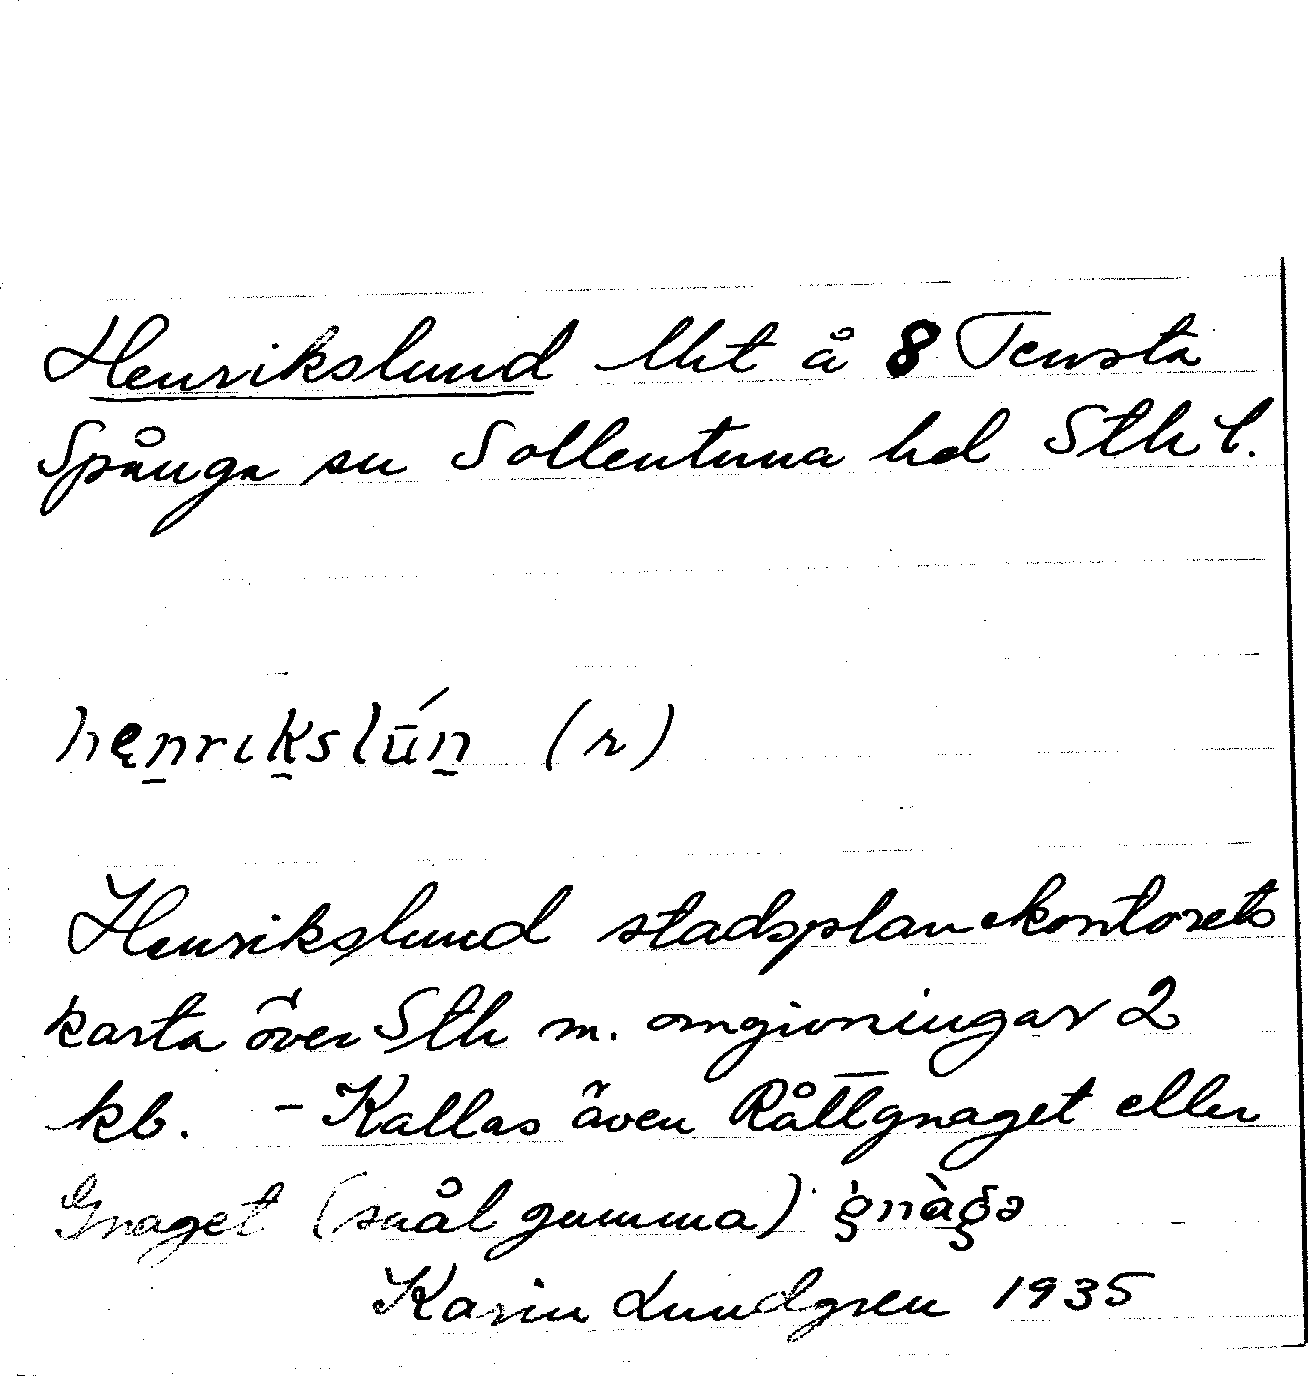 Henrikslund lht å 8 Tensta
Spånga sn Sollentuna hd Sth l.
hęn̲rik̲slūń̲ (r)
Henrikslund stadsplanekontorets
karta över Sth m. omgivningar 2
kb. - Kallas även Råttgnaget eller
Gnaget (snål gumma) gnàgə
Karin Lundgren 1935